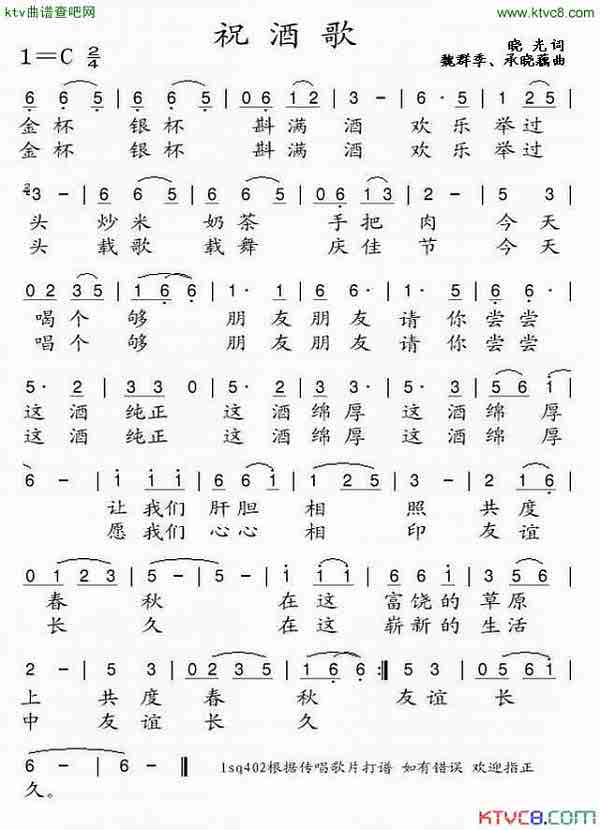 ktv曲谱查吧网
www.ktvc8.com
祝酒歌
1=C 2/4
晓光词
魏群季、承晓藕曲
6 6 5 | 6 6 5 | 0 6 1 2 | 3 - | 6 6 5 | 1 2 5
金杯 银杯 斟满酒 欢乐举过
金杯 银杯 斟满酒 欢乐举过
3 - | 6 6 5 | 6 6 5 | 0 6 1 3 | 2 - | 5 3 |
头 炒米 奶茶 手把肉 今天
头 载歌 载舞 庆佳节 今天
0 2 3 5 | 1 6 6 | 1· 1 | 6 6· | 1· 1 | 5 5· |
喝个够 朋友朋友请你尝尝
唱个够 朋友朋友请你尝尝
5· 2 | 3 3 0 | 5· 2 | 3· 3· | 3· 2 | 5 6 1 |
这酒纯正 这酒绵厚 这酒绵厚
这酒纯正 这酒绵厚 这酒绵厚
6 - | 1 1 1 | 6 6 1 | 1 2 5 | 3 - | 5 3 |
让我们肝胆相照 共度
愿我们心心相印 友谊
0 1 2 3 | 5 - | 5 - | 1 1 1 | 6 6 1 | 3 5 6 |
春秋 在这富饶的草原
长久 在这崭新的生活
2 - | 5 3 | 0 2 3 5 | 1 6 6 :‖ 5 3 | 0 5 6 1 |
上 共度春秋 友谊长
中 友谊长久
6 - | 6 - ‖ lsq402根据传唱歌片打谱 如有错误 欢迎指正
久。
KTVC8.com